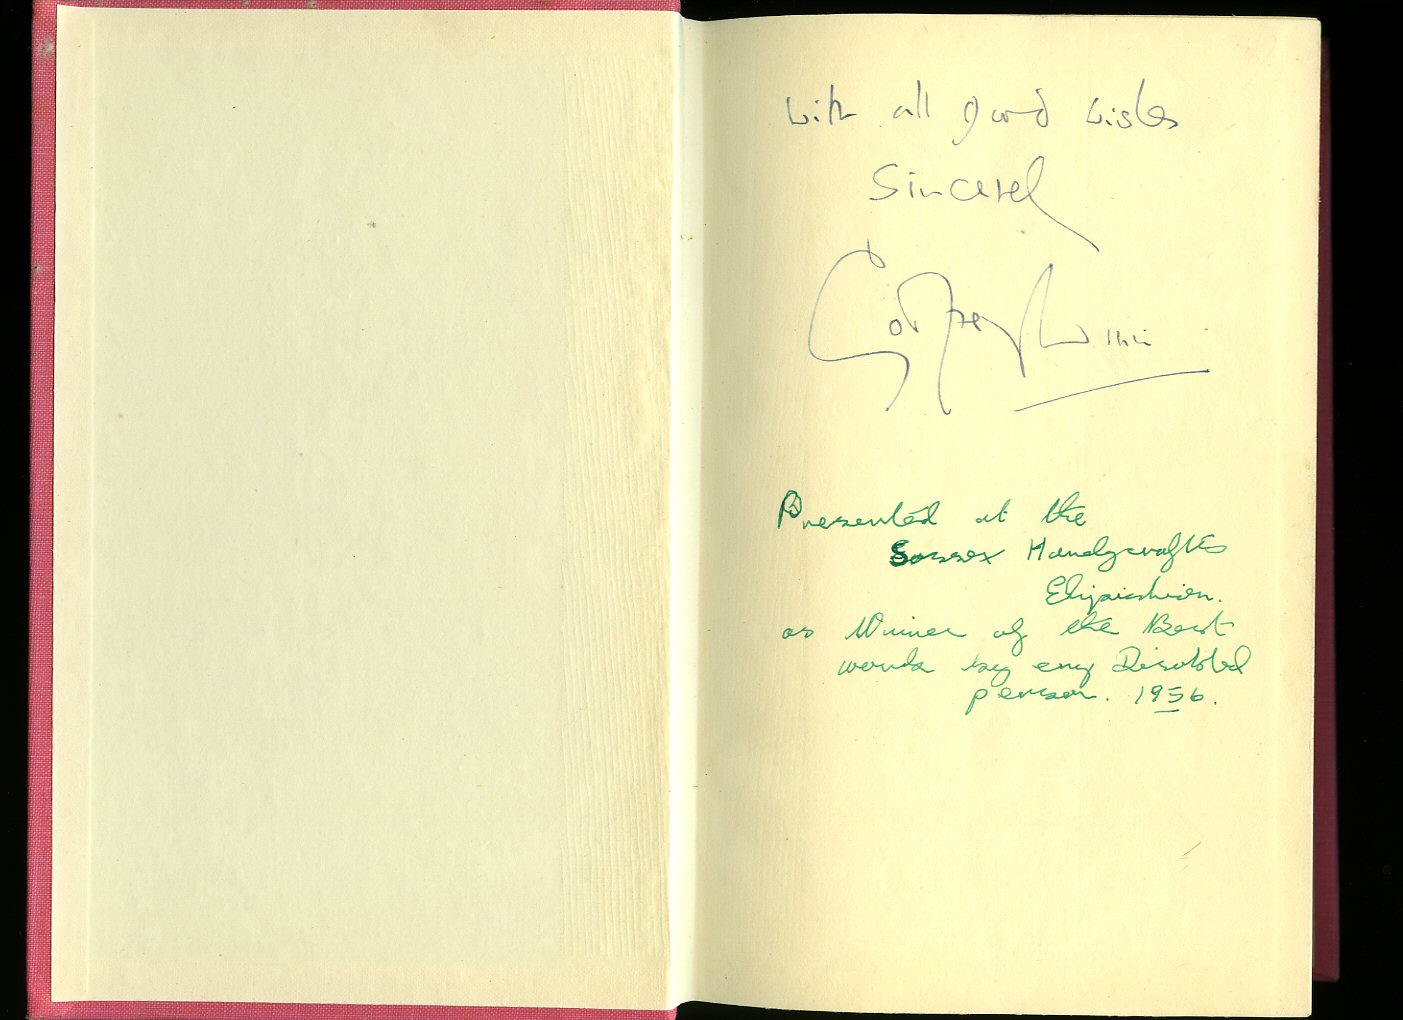 With all good wishes
Sincerely
Godfrey Winn
Presented at the
Sussex Handycrafts
as Winner of the Best
work by any Disabled
person. 1956.